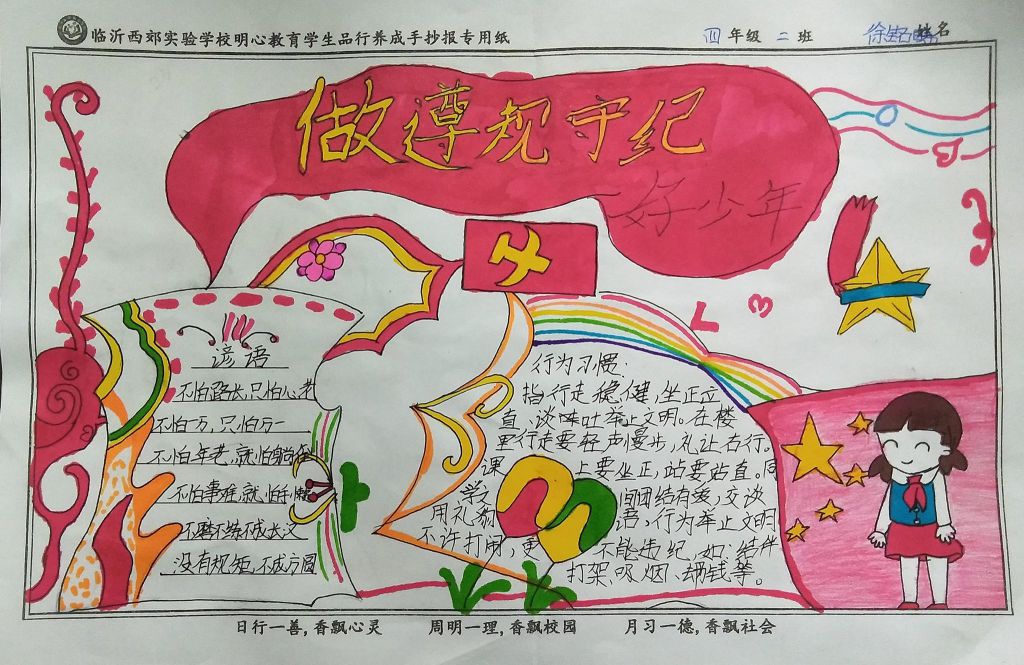 临沂西郊实验学校明心教育学生品行养成手抄报专用纸
四年级二班
姓名
做遵规守纪
好少年
谚语
不怕路长,只怕心老
不怕一万,只怕万一
不怕年老,就怕躺倒
不怕事难,就怕手懒
不磨不练不成长汉
没有规矩,不成方圆
行为习惯:
指行走稳健,坐正立
直、谈吐举止文明。在楼
里行走要轻声慢步,礼让右行。
课上要坐正,站要站直。同
学之间团结有爱,交谈
用礼貌语,行为举止文明
不许打闹,更不能违纪,如:结伴
打架、吸烟、赌钱等。
日行一善,香飘心灵 周明一理,香飘校园 月习一德,香飘社会